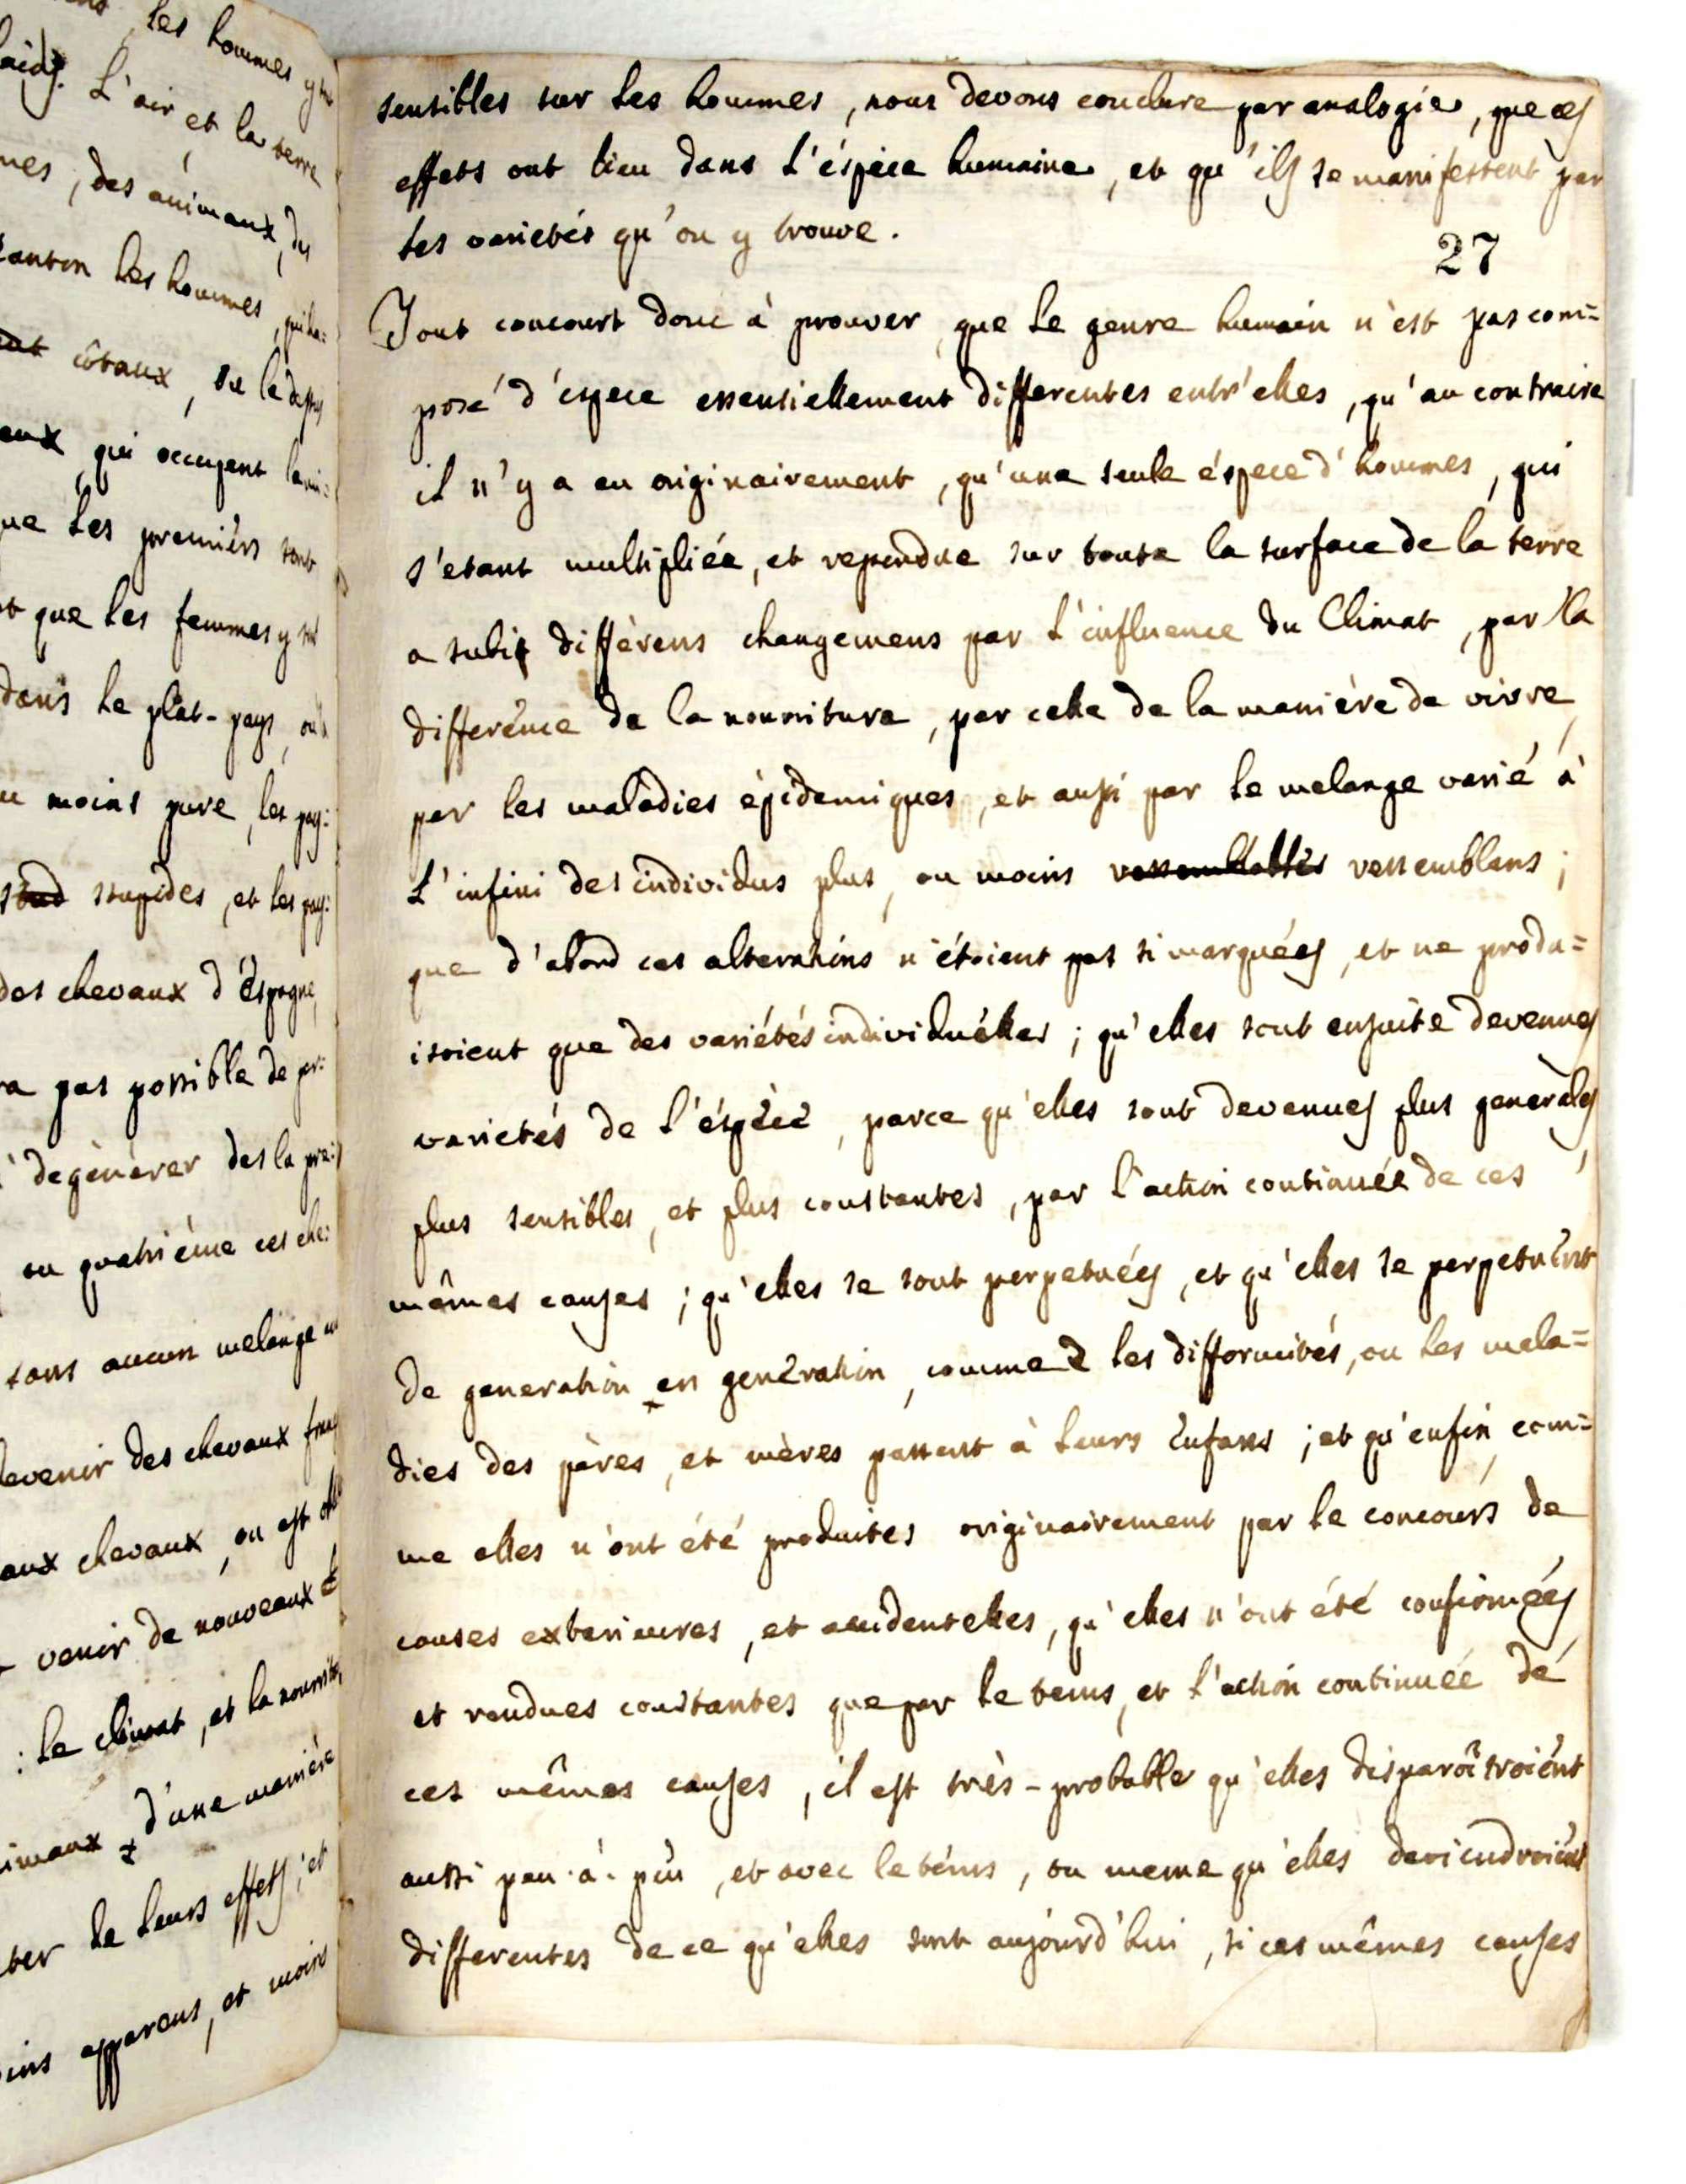 les hommes y
L'air et la terre
mes, des animaux, du
canton les hommes, qui ha=
côtaux, ou le dessus
eux, qui occupent la mi=
que les premiérs sont
et que les femmes y
dans le plat-pays, où
moins pure, les pay:
stupides, et les pay:
des chevaux d'éspagne,
pas possible de per:
à dégènérer des la pre:
ou quatriéme ces che:
sans aucun melange
devenir des chevaux
aux chevaux, on est
venir de nouveaux
: le climat, et la nourrit
d'une manière
de leurs effets; et
apparens, et moins
sensibles sur les hommes, nous devons conclure par analogie, que ces
effets ont lieu dans l'éspèce humaine, et qu'ils se manifestent par
les varietés qu'on y trouve.
27
Tout concourt donc à prouver, que le genre humain n'est pas com=
posé d'espece essensiellement differentes entr'elles, qu'au contraire
il n'y a eu originairement, qu'une seule éspece d'hommes, qui
s'etant multipliée, et rependue sur toute la surface de la terre
a subit différens changemens par l'influence du Climat, par la
difference de la nourriture, par celle de la manière de vivre,
par les maladies épidemiques, et aussi par le melange varié à
l'infini des individus plus, ou moins ressemblables ressemblans;
que d'abord ces alterations n'étoient pas si marquées, et ne produ=
isoient que des variétés individuélles; qu'elles sont ensuite devenues
varietés de l'éspèce, parce qu'elles sont devenues plus generàles,
plus sensibles, et plus constantes, par l'action continuée de ces
mêmes causes; qu'elles se sont perpetuées, et qu'elles se perpetuent
de generation en generation, comme les difformités, ou les mela=
dies des pères, et mères passent à leurs Enfans; et qu'enfin, com=
me elles n'ont été produites originairement par le concours de
causes exterieures, et accidentelles, qu'elles n'ont été confirmées,
et rendues constantes que par le tems, et l'action continuée de
ces mêmes causes, il est très-probable qu'elles disparoîtroiént
aussi peu-à-peu, et avec le téms, ou meme qu'elles deviendroient
differentes de ce qu'elles sont aujourd'hui, si ces mêmes causes